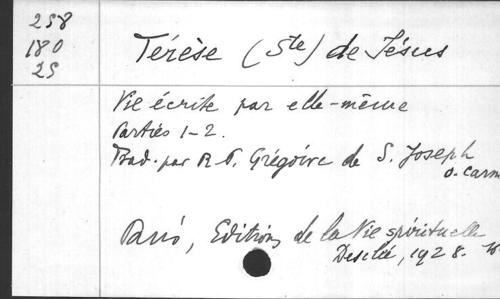 258
180
25
Térèse (Ste) de Jésus
Vie écrite par elle-même
Parties 1-2.
Trad. par R P. Grégoire de S. Joseph
o. carm
Paris, Editions de la Vie spirituelle
Desclée, 1928.